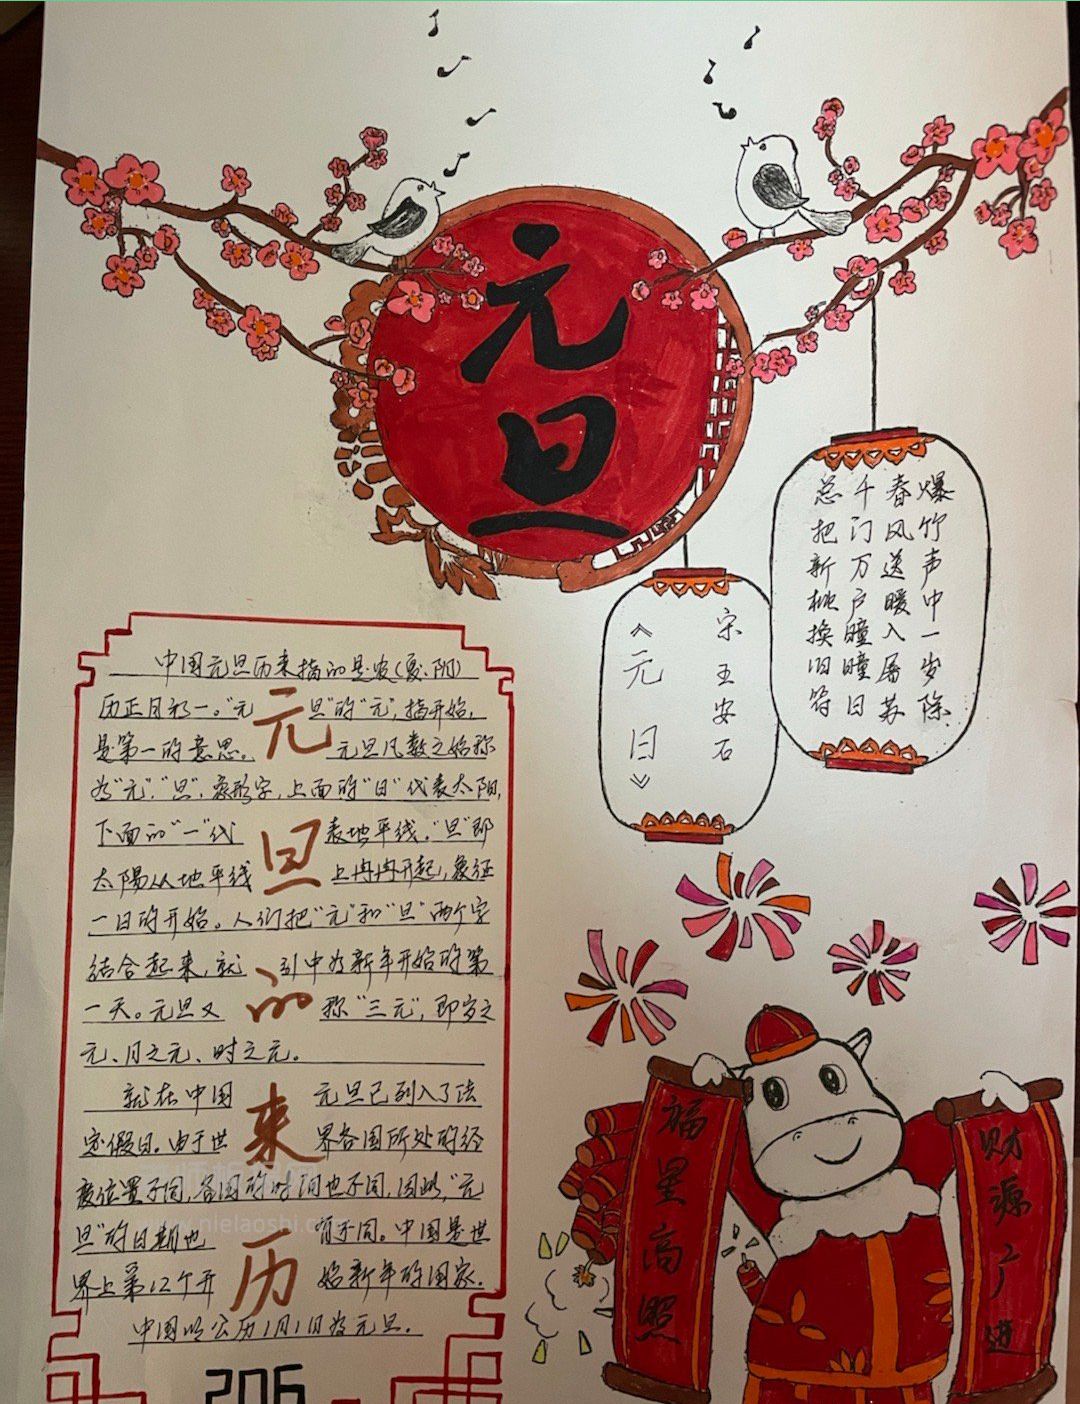 元旦
爆竹声中一岁除
春风送暖入屠苏
千门万户瞳瞳日
总把新桃换旧符
宋 王安石
《元日》
元旦的来历
中国元旦历来指的是农(夏、阴)
历正月初一。"元旦"的"元",指开始,
是第一的意思。元旦凡数之始称
为"元","旦",象形字,上面的"日"代表太阳,
下面的"一"代表地平线。"旦"即
太阳从地平线上冉冉升起,象征
一日的开始。人们把"元"和"旦"两个字
结合起来,就引申为新年开始的第
一天。元旦又称"三元",即岁之
元、月之元、时之元。
就在中国元旦已列入了法
定假日。由于世界各国所处的经
度位置不同,各国的时间也不同,因此,"元
旦"的日期也有不同。中国是世
界上第12个开始新年的国家。
中国以公历1月1日为元旦。
206
福星高照
财源广进
www.nielaoshi.c